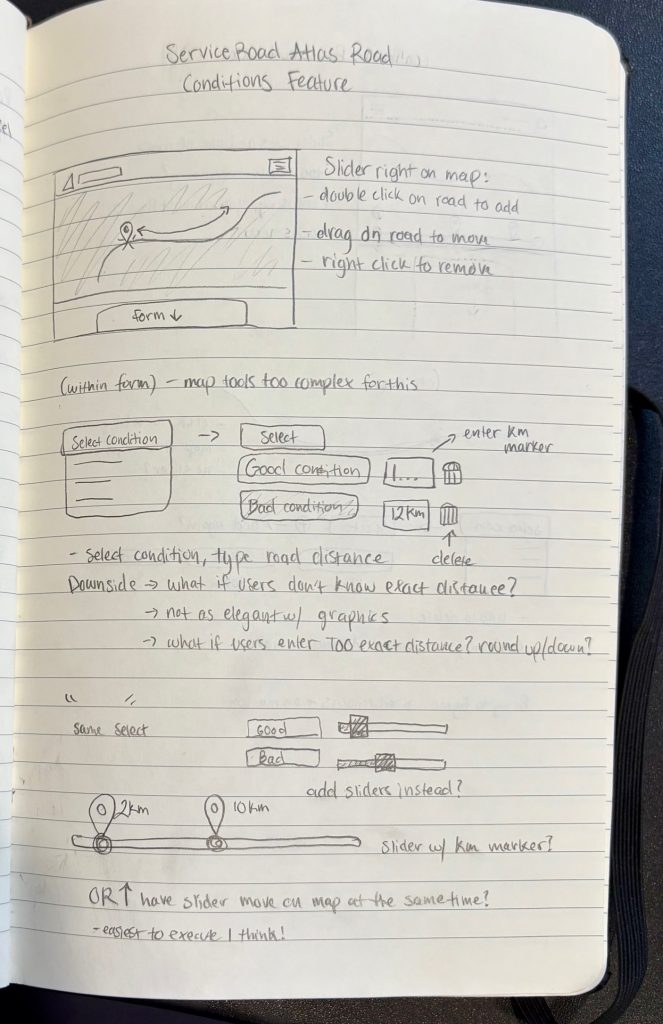 Service Road Atlas Road
Conditions Feature
Slider right on map:
- double click on road to add
- drag on road to move
- right click to remove
form ↓
(within form) - map tools too complex for this
Select condition
→
Select
Good condition
1...
enter km
marker
Bad condition
12km
delete
- Select condition, type road distance
Downside → what if users don't know exact distance?
→ not as elegant w/ graphics
→ what if users enter TOO exact distance? round up/down?
" "
Same select
Good
Bad
add sliders instead?
2km
10km
Slider w/ km marker?
OR ↑ have slider move on map at the same time?
- easiest to execute I think!